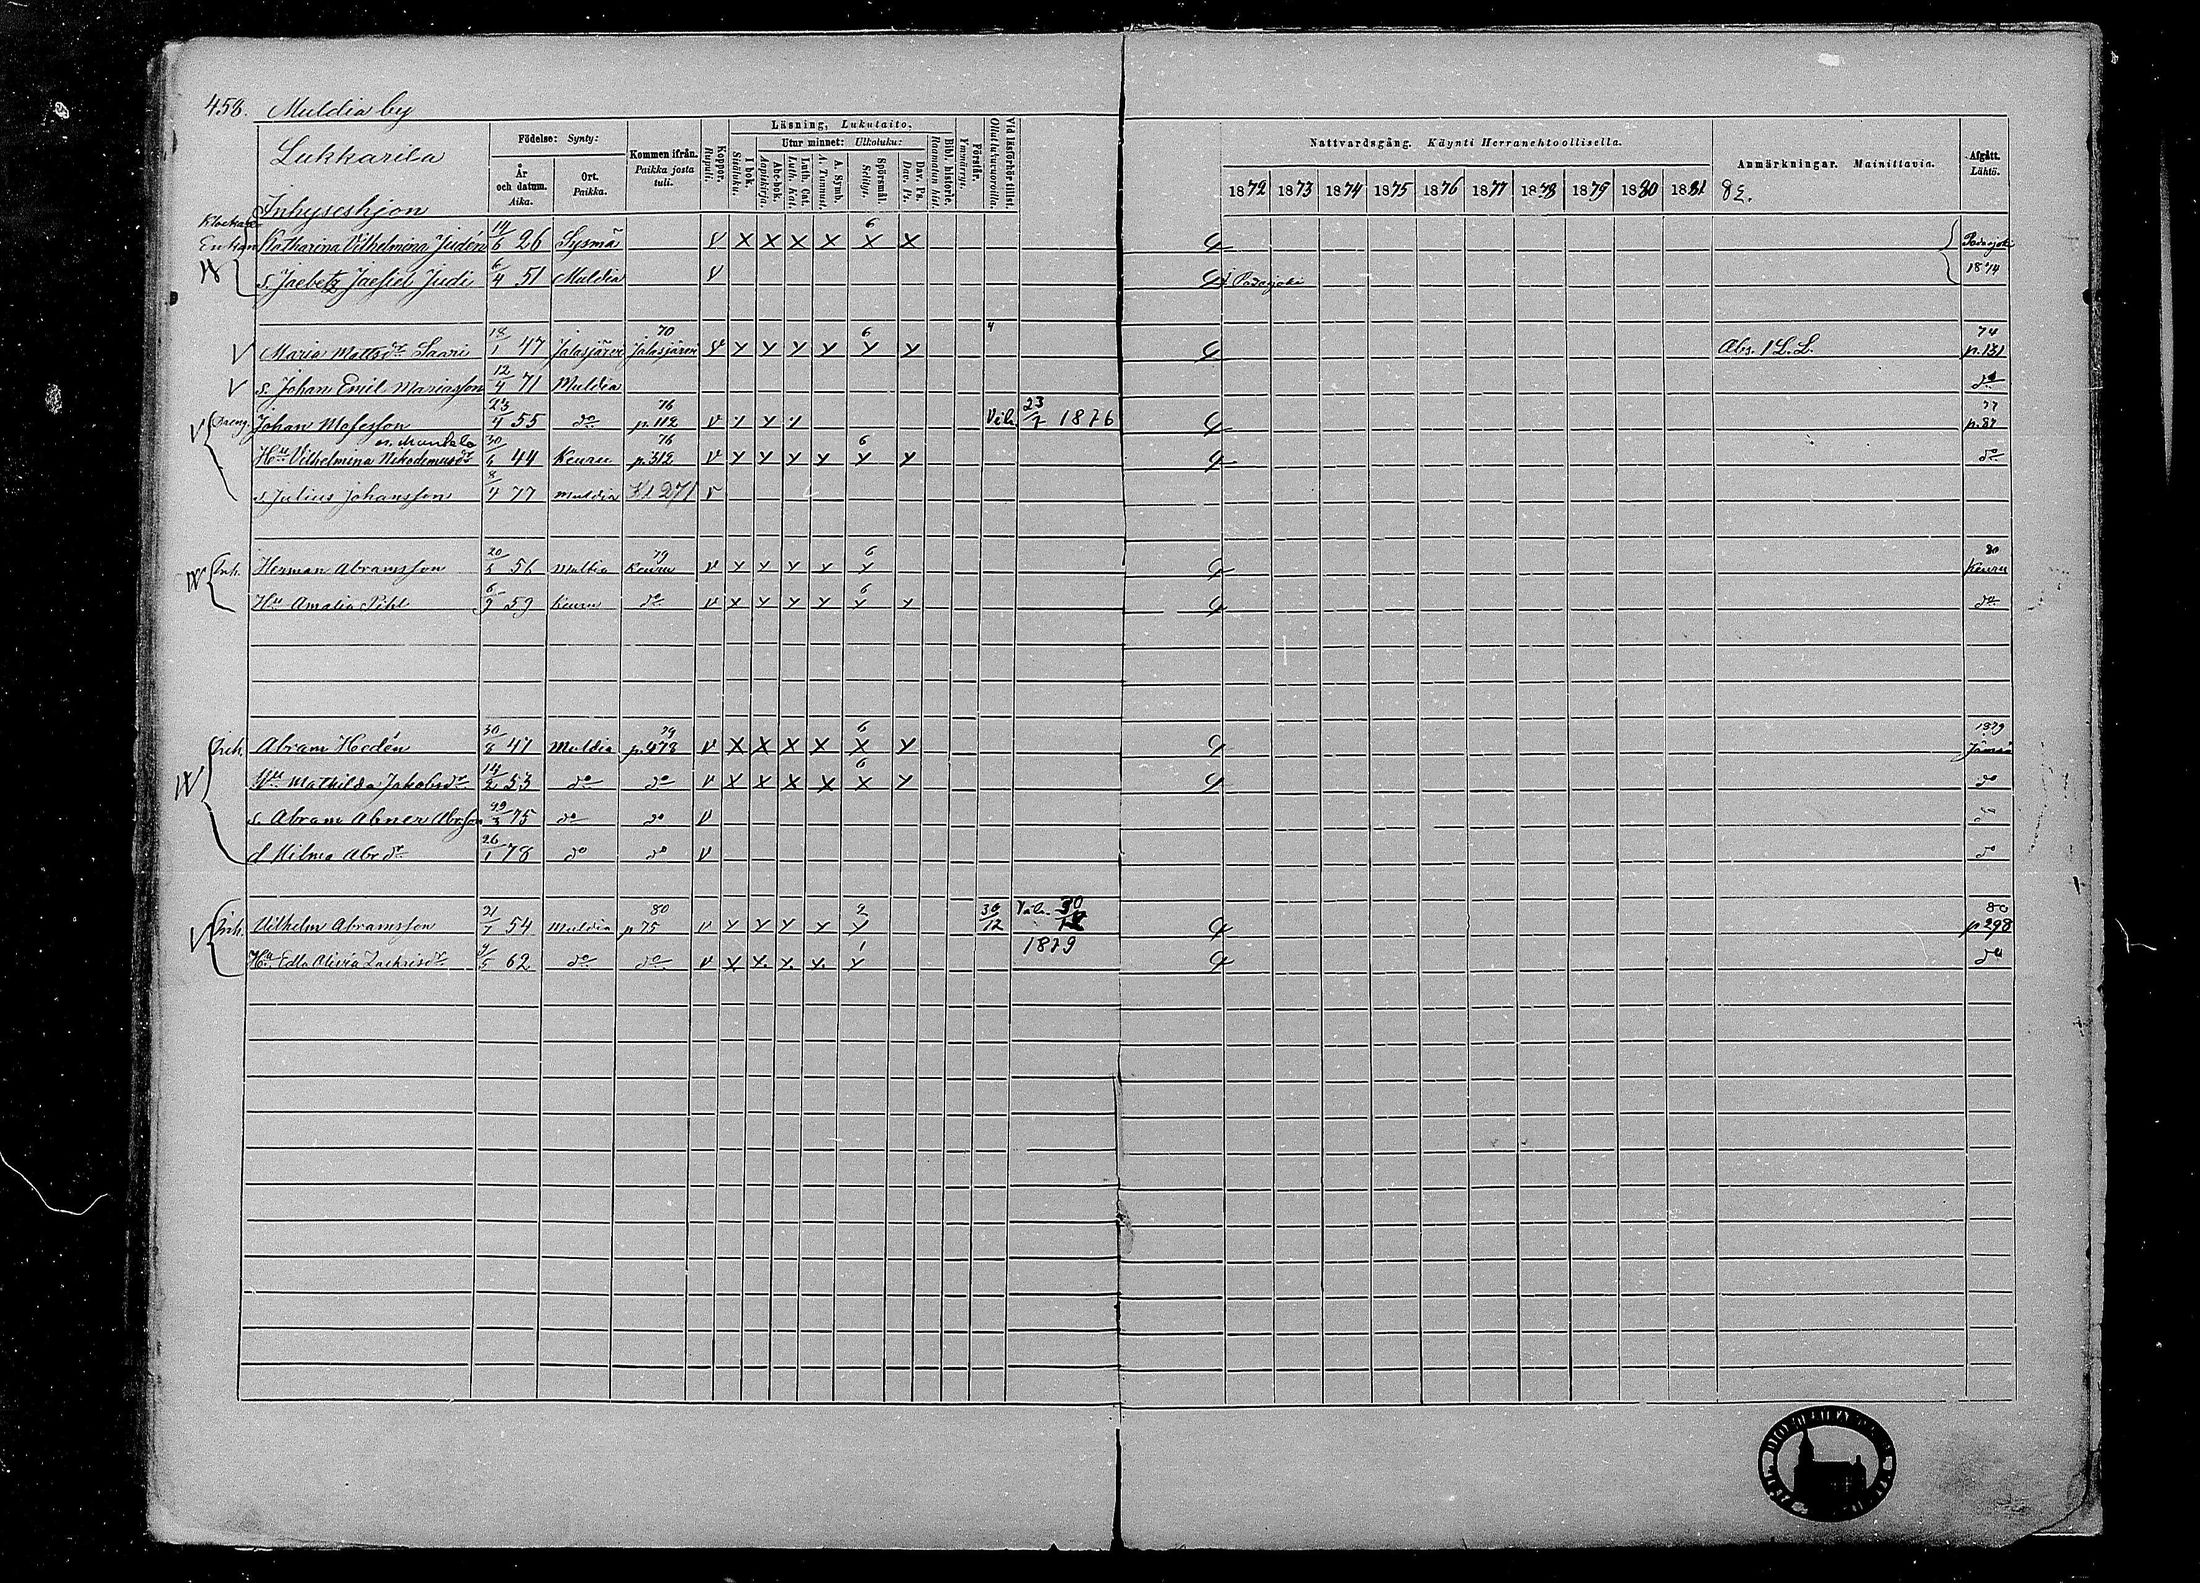 458. Muldia by
Lukkarila
Födelse: Synty:
År och datum. Aika.
Ort. Paikka.
Kommen ifrån. Paikka josta tuli.
Koppor. Rupuli.
Läsning, Lukutaito.
I bok. Sisäluku.
Utur minnet: Ulkoluku:
Abc-bok. Aapiskirja.
Luth. Cat. Luth. Kat.
A. Symb. A. Tunnust.
Spörsmål. Selitys.
Dav. Ps. Dav. Ps.
Bibl. historie. Raamatun hist.
Förstår. Ymmärrys.
Vid läsförhör tillst. Ollut lukuvuoroilla.
Nattvardsgång. Käynti Herranehtoollisella.
1872 1873 1874 1875 1876 1877 1878 1879 1880 1881
Anmärkningar. Mainittavia.
Afgått. Lähtö.
Inhyseshjon
Enkan Katharina Vilhelmina Judén 19/6 26 Sysmä V X X X X 6 X X Padasjoki
s. Jaebetz Jaefiel Judé 6/4 51 Muldia V Padasjoki 1874
V Maria Mattsdr Saari 18/1 47 Jalasjärvi 70 Jalasjärvi V Y Y Y Y 6 Y Y 4 Abs. 1 L. L. 74 p. 131
V s. Johan Emil Mariasson 12/4 71 Muldia do
V Dreng. Johan Mosesson 23/4 55 do 76 p. 112 V Y Y Y Vih. 23/7 1876 77 p. 87
Hu Vilhelmina Nikodemusdr 30/6 44 Keuru 76 p. 312 V Y Y Y Y 6 Y Y do
s. Julius Johansson 8/4 77 Muldia 271 V
IV Inh. Herman Abramsson 20/5 56 Multia 79 Keuru V Y Y Y Y 6 Y 80 Keuru
Hu Amalia Pihl 6/9 59 Keuru do V Y Y Y Y 6 Y Y do
IV Inh. Abram Hedén 30/8 47 Muldia 79 p. 478 V X X X X 6 X Y 1879 Jämsä
Hu Mathilda Jakobsdr 14/2 53 do do V X X X X 6 X Y do
s. Abram Abner Abrsson 29/3 75 do do V do
d Hilma Abrdr 26/1 78 do do V do
V Inh. Vilhelm Abramsson 21/7 54 Muldia 80 p 75 V Y Y Y Y 2 Y 30/12 Vih. 30/12 1879 80 p 298
Hu Edla Olivia Zachrisdr 4/5 62 do do V X Y. Y. Y. 1 Y do